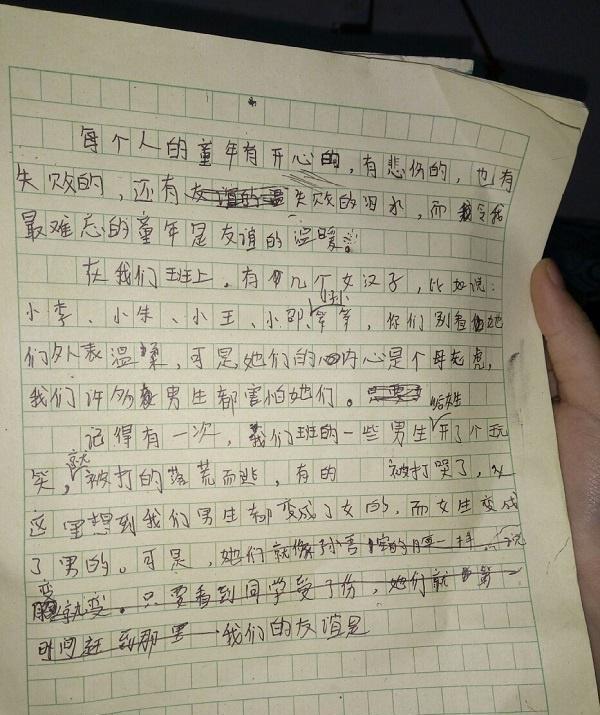 每个人的童年有开心的，有悲伤的，也有
失败的，还有失败的泪水，而令我
最难忘的童年是友谊的温暖。
在我们班上，有几个女汉子，比如说：
小李、小朱、小王、小邵、等等，你们别看她
们外表温柔，可是她们的内心是个母老虎，
我们许多男生都害怕她们。
记得有一次，我们班的一些男生给女生开了个玩
笑，就被打的落荒而逃，有的 被打哭了，从
这里想到我们男生都变成了女的，而女生变成
了男的。可是，她们就像孙悟空的脸一样，说
变就变。只要看到同学受了伤，她们就第一
时间赶到那里 我们的友谊是